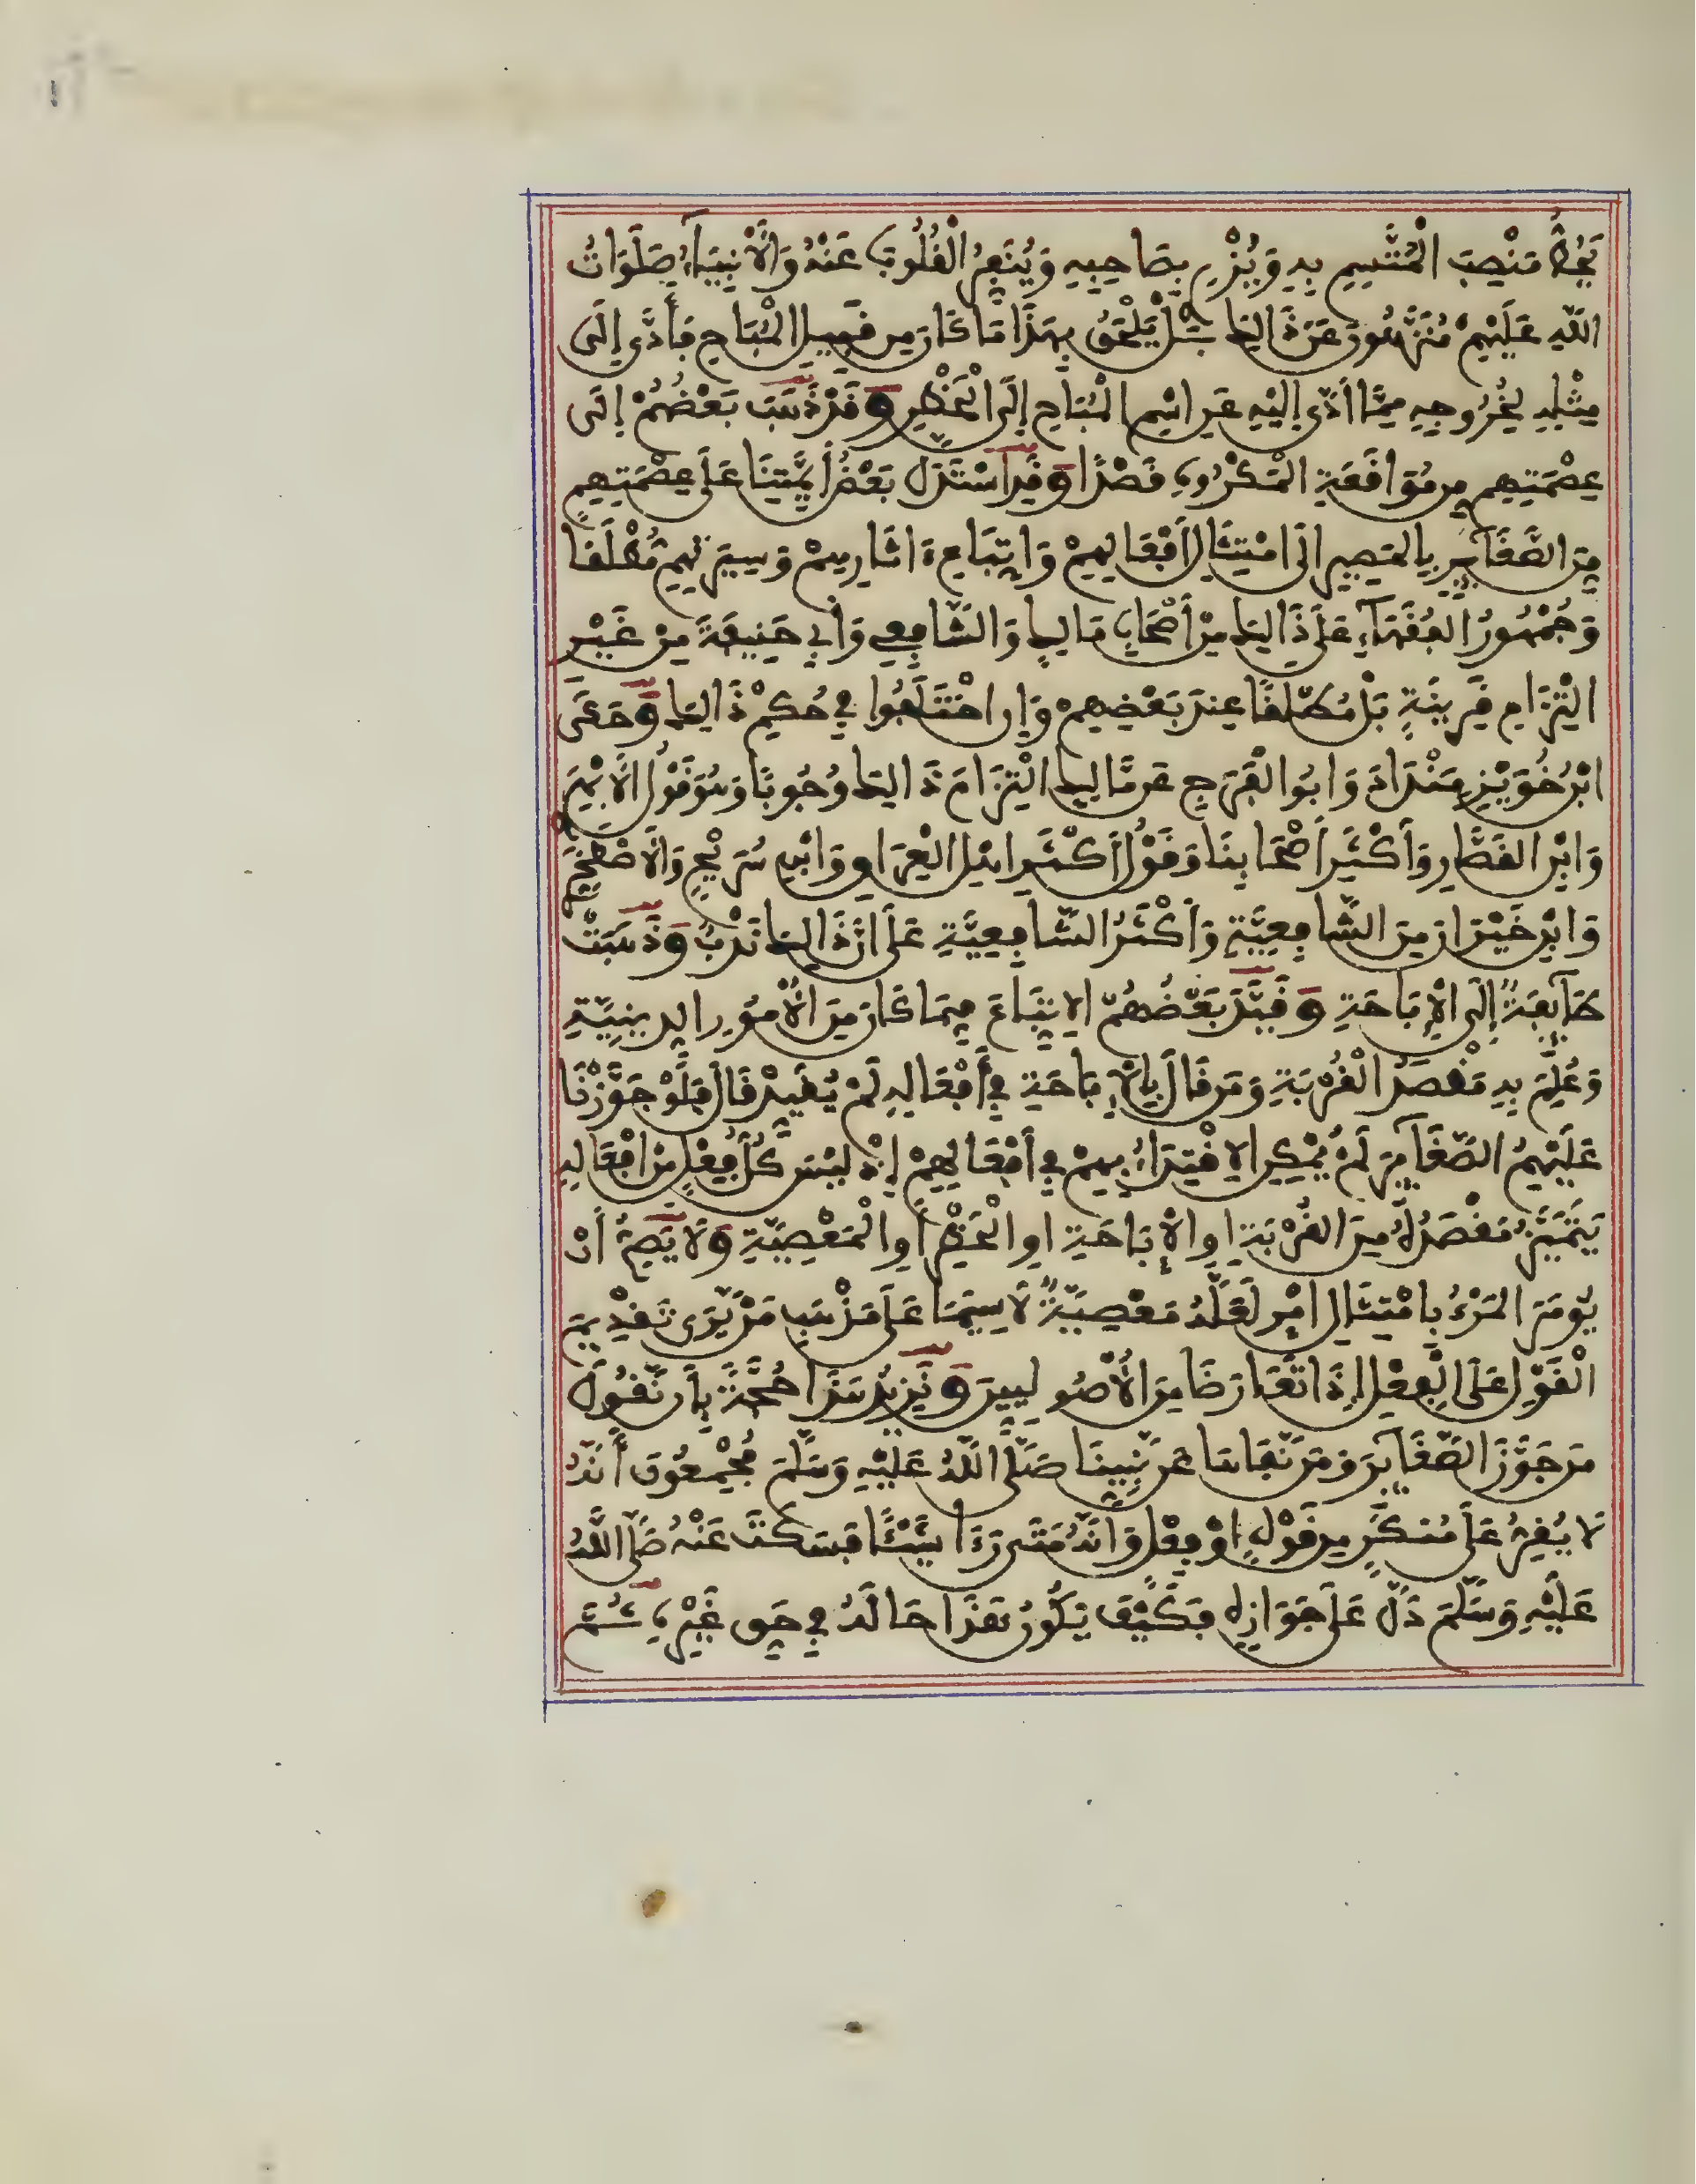 يَحُطُّ مَنْصِبَ الْمُتَّسِمِ بِهِ وَيُزْرِي بِصَاحِبِهِ وَيُنَفِّرُ الْقُلُوبَ عَنْهُ وَالْأَنْبِيَاءُ صَلَوَاتُ
اللَّهِ عَلَيْهِمْ مُنَزَّهُونَ عَنْ ذَالِكَ بَلْ يَلْحَقُ بِهَذَا مَا كَانَ مِن قَبِيلِ الْمُبَاحِ فَأَدَّى إِلَى
مِثْلِهِ لِخُرُوجِهِ مِمَّا أَدَّى إِلَيْهِ عَنِ اسْمِ الْمُبَاحِ إِلَى الْحَظْرِ وَقَدْ ذَهَبَ بَعْضُهُمْ إِلَى
عِصْمَتِهِم مِن مُوَاقَعَةِ الْمَكْرُوهِ قَصْدًا وَقَدِ اسْتَدَلَّ بَعْضُ أَئِمَّتِنَا عَلَى عِصْمَتِهِم
مِنَ الصَّغَائِرِ بِالْمَصِيرِ الَى امْتِثَالِ أَفْعَالِهِمْ وَاتِّبَاعِ ءَاثَارِهِمْ وَسِيَرِهِمْ مُطْلَقًا
وَجُمْهُورُ الْفُقَهَاءِ عَلَى ذَالِكَ مِنْ أَصْحَابِ مَالِكٍ وَالشَّافِعِي وَأَبِي حَنِيفَةَ مِنْ غَيْرِ
الْتِزَامِ قَرِينَةٍ بَلْ مُطْلَقًا عِنْدَ بَعْضِهِمْ وَإِنِ اخْتَلَفُوا فِي حُكْمِ ذَالِكَ وَحَكَى
ابْنُ خُوَيْزِ مَنْدَادَ وَابُو الْفَرَجِ عَن مَّالِكٍ الْتِزَامَ ذَالِكَ وُجُوبًا وَهُوَ قَوْلُ الْأَبْهَرِي
وَابْنِ الْقَصَّارِ وَأَكْثَرِ أَصْحَابِنَا وَقَوْلُ أَكْثَرِ اهْلِ الْعِرَاقِ وَابْنِ سُرَيْجٍ وَالْاصْطَخْرِي
وَابْنِ خَيْرَانَ مِنَ الشَّافِعِيَّةِ وَأَكْثَرُ الشَّافِعِيَّةِ عَلَى انَّ ذَالِكَ نَدْبٌ وَذَهَبَتْ
طَائِفَةٌ إِلَى الْإِبَاحَةِ وَقَيَّدَ بَعْضُهُمُ الِاتِّبَاعَ فِيمَا كَانَ مِنَ الْأُمُورِ الدِّينِيَّةِ
وَعُلِمَ بِهِ مَقْصَدُ الْقُرْبَةِ وَمَن قَالَ بِالْإِبَاحَةِ فِي أَفْعَالِهِ لَمْ يُقَيِّدْ قَالَ فَلَوْ جَوَّزْنَا
عَلَيْهِمُ الصَّغَائِرَ لَمْ يُمْكِنِ الِاقْتِدَاءُ بِهِمْ فِي أَفْعَالِهِمْ إِذْ لَيْسَ كُلُّ فِعْلٍ مِنْ افْعَالِهِ
يَتَمَيَّزُ مَقْصَدُهُ مِنَ الْقُرْبَةِ اوِ الْإِبَاحَةِ اوِ الْحَظْرِ أَوِ الْمَعْصِيَةِ وَلَا يَصِحُّ أَنْ
يُومَرَ الْمَرْءُ بِامْتِثَالِ امْرٍ لَعَلَّهُ مَعْصِيَةٌ لَا سِيَمَا عَلَى مَذْهَبِ مَنْ يَّرَى تَقْدِيمَ
الْقَوْلِ عَلَى الْفِعْلِ إِذَا تَعَارَضَا مِنَ الْأُصُولِيِّينَ وَنَزِيدُ هَذَا حُجَّةً بِأَن نَّقُولَ
مَن جَوَّزَ الصَّغَائِرَ وَمَن نَّفَاهَا عَن نَّبِيِّنَا صَلَّى اللَّهُ عَلَيْهِ وَسَلَّمَ مُجْمِعُونَ أَنَّهُ
لَا يُقِرُّ عَلَى مُنْكَرٍ مِن قَوْلٍ اوْ فِعْلٍ وَانَّهُ مَتَى رَءَا شَيْئًا فَسَكَتَ عَنْهُ صَلَّى اللَّهُ
عَلَيْهِ وَسَلَّمَ دَلَّ عَلَى جَوَازِهِ فَكَيْفَ يَكُونُ هَذَا حَالَهُ فِي حَقِّ غَيْرِهِ ثُمَّ